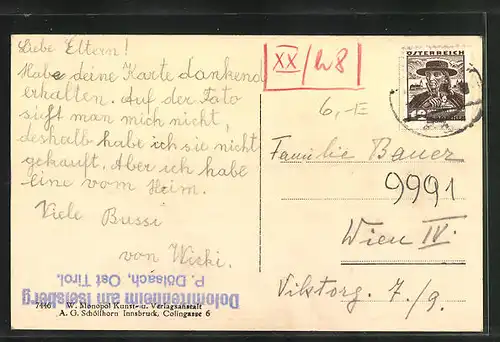 Liebe Eltern!
Habe deine Karte dankend
erhalten. Auf der Foto
sieht man mich nicht,
deshalb habe ich sie nicht
gekauft. Aber ich habe
eine vom Heim.
Viele Bussi
von Wicki.
Dolomitenheim am Iselsberg
P. Dölsach, Ost Tirol.
7446 W. Monopol Kunst- u. Verlagsanstalt
A. G. Schöllhorn Innsbruck, Colingasse 6
XX/h8
6,-E
ÖSTERREICH
12
Familie Bauer
9991
Wien IV.
Viktorg. 7/9.